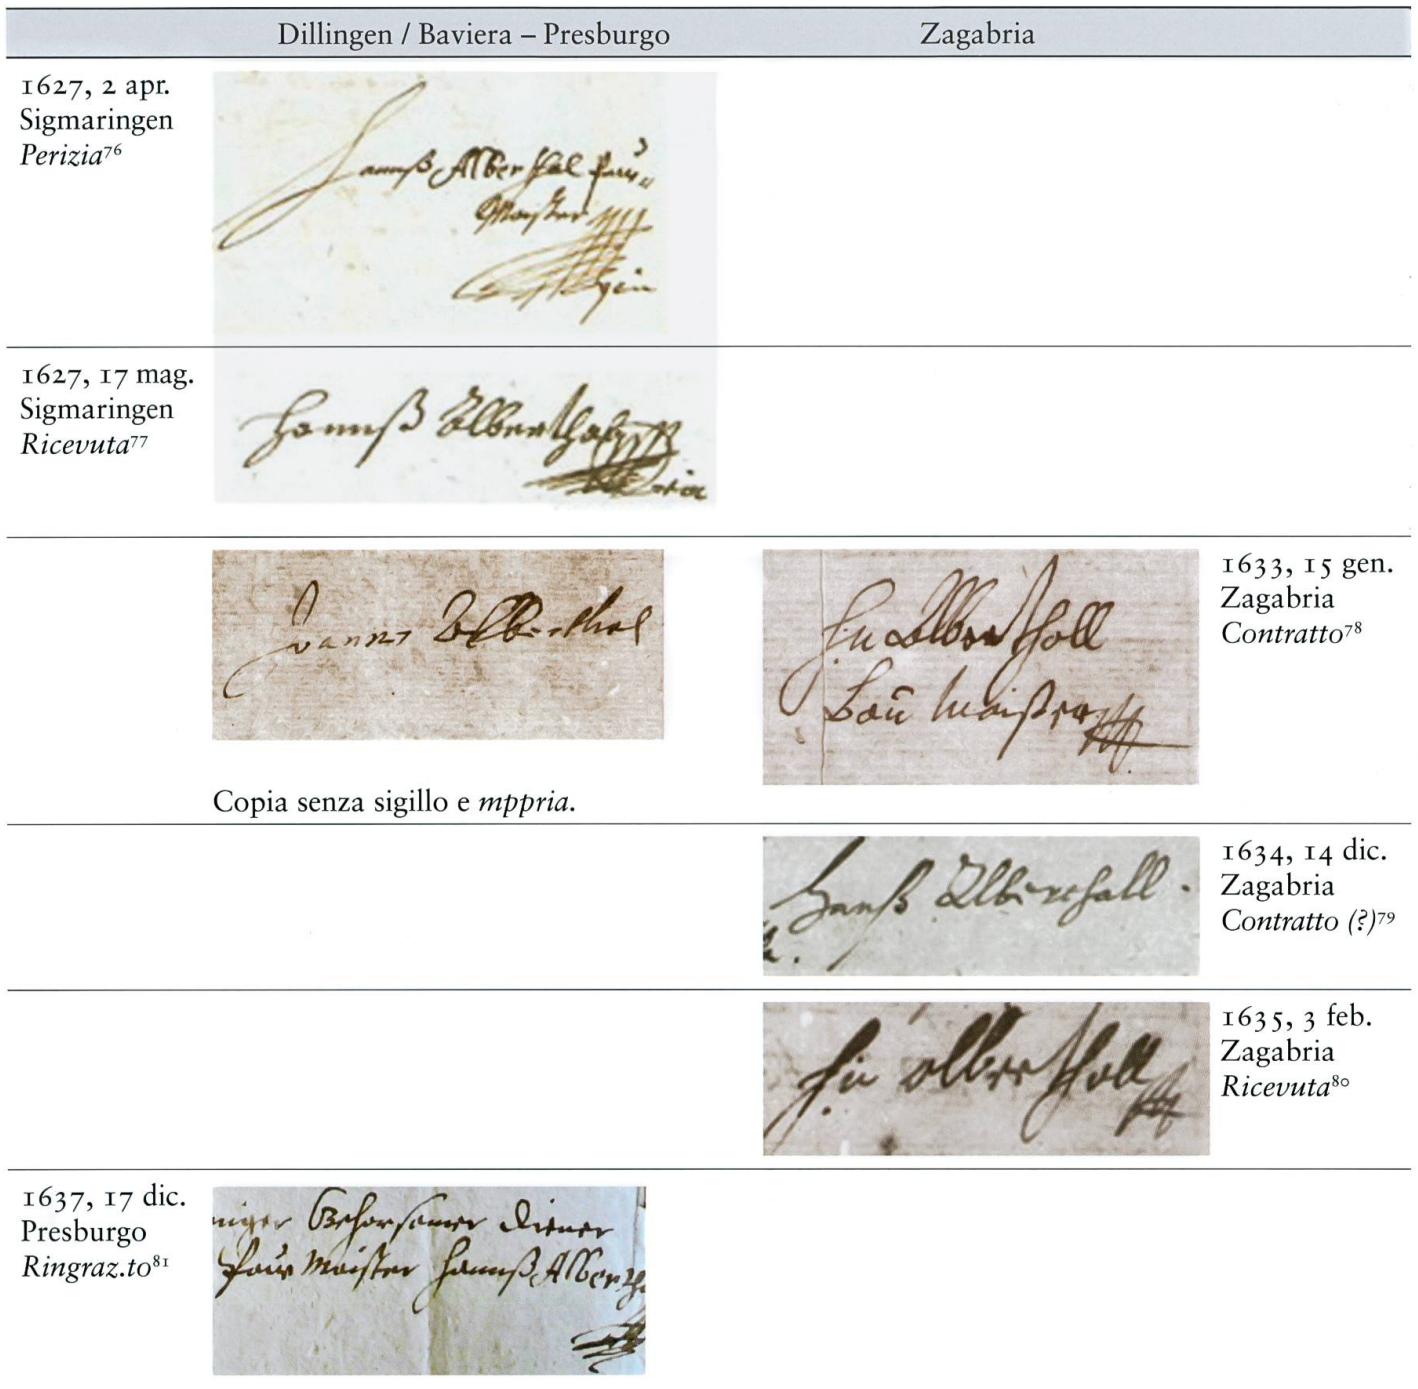 Dillingen / Baviera – Presburgo
Zagabria
1627, 2 apr.
Sigmaringen
Perizia⁷⁶
Hannß Alberthal Paw„
Maister
1627, 17 mag.
Sigmaringen
Ricevuta⁷⁷
Hannß Alberthal
Joannes Alberthal
Copia senza sigillo e mppria.
Alberthall
Baŭ Maister
1633, 15 gen.
Zagabria
Contratto⁷⁸
Hanß Alberthall
1634, 14 dic.
Zagabria
Contratto (?)⁷⁹
alberthall
1635, 3 feb.
Zagabria
Ricevuta⁸⁰
1637, 17 dic.
Presburgo
Ringraz.to⁸¹
Gehorsamer Diener
Paw Maister Hannß Alberth